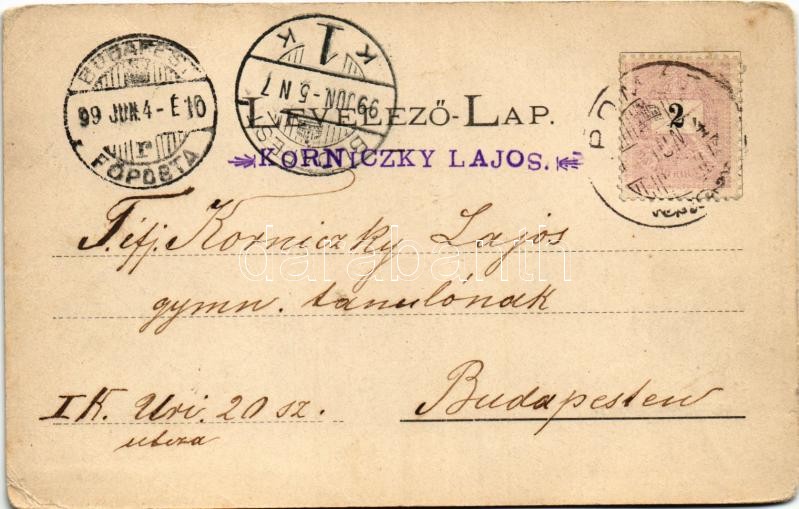 BUDAPEST
99 JUN. 4 - É 10
r
FŐPOSTA
K 1 K
99 JUN - 5 N 7
LEVELEZŐ-LAP.
KORNICZKY LAJOS.
2
T. ifj. Korniczky Lajos
gymn. tanulónak
I K. Uri. 20 sz.
utcza
Budapesten
darabanth